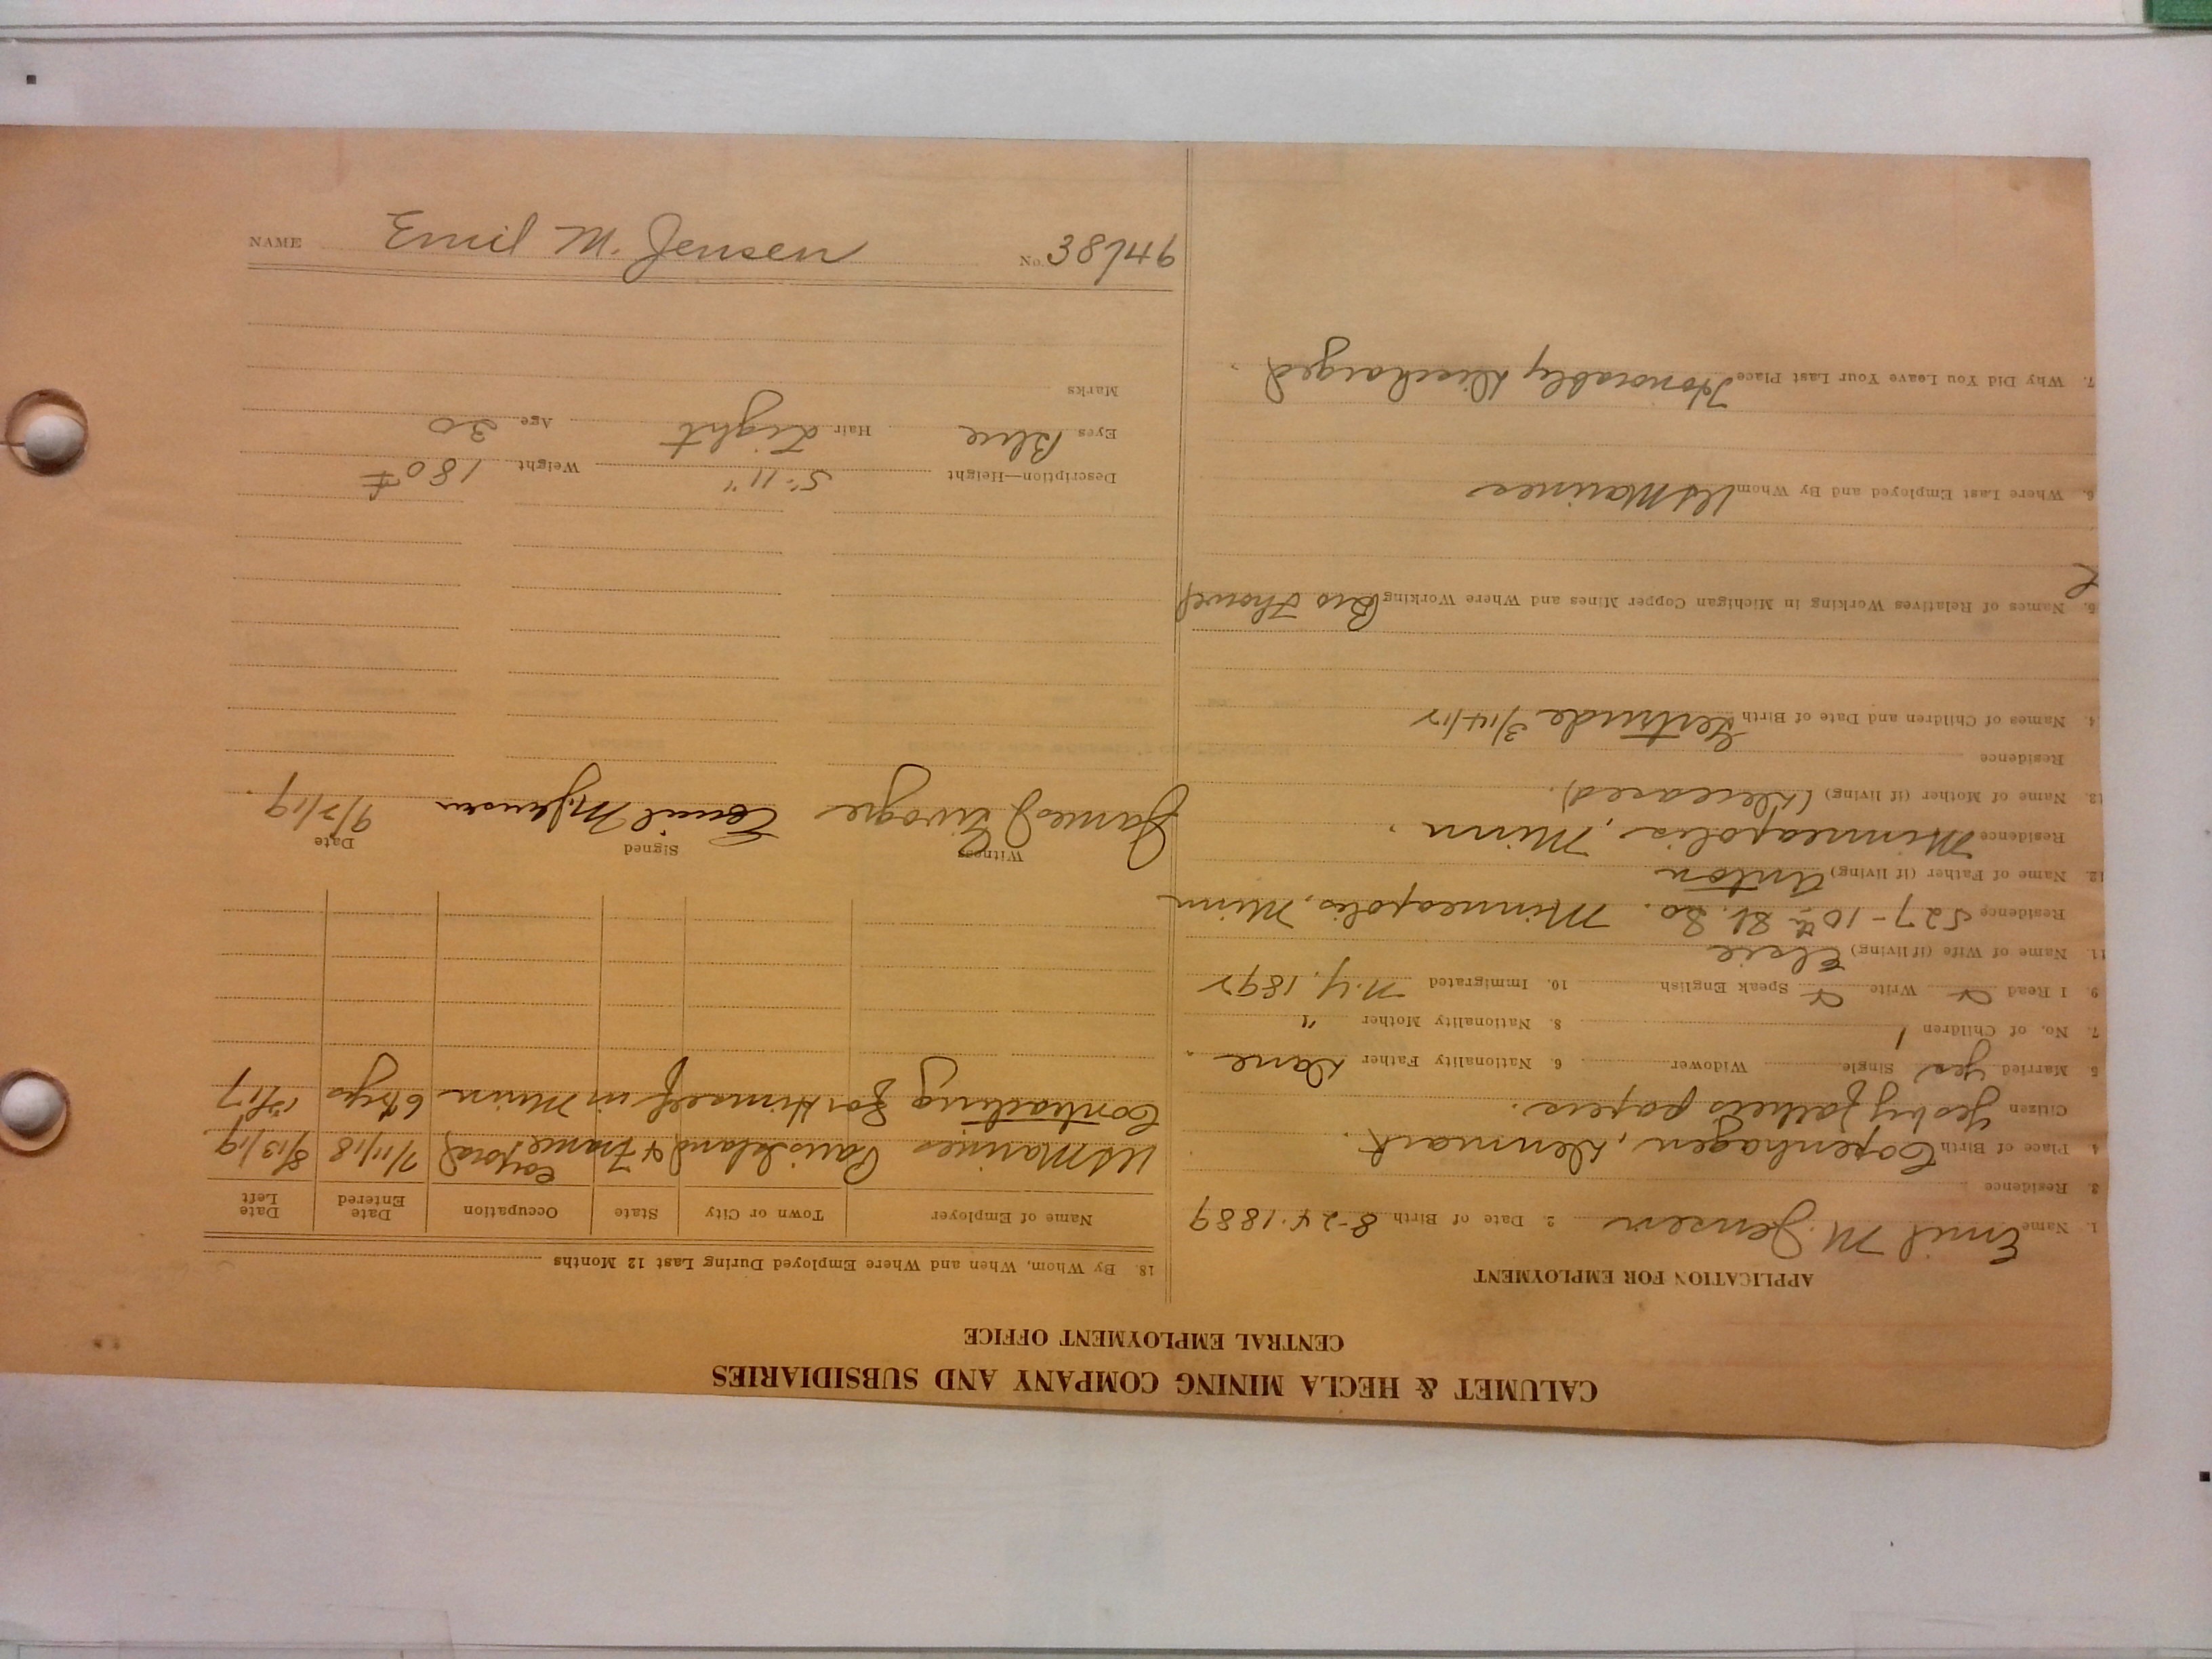 CALUMET & HECLA MINING COMPANY AND SUBSIDIARIES
CENTRAL EMPLOYMENT OFFICE
APPLICATION FOR EMPLOYMENT
1. Name Emil M. Jensen 2. Date of Birth 8-24-1889
3. Residence
4. Place of Birth Copenhagen, Denmark.
Citizen Yes by fathers papers.
5. Married yes Single Widower 6. Nationality Father Dane.
7. No. of Children 1 8. Nationality Mother "
9. I Read Write Speak English 10. Immigrated N.Y. 1892
11. Name of Wife (if living) Elsie
Residence 527-10th St. So. Minneapolis, Minn
12. Name of Father (if living) Anton
Residence Minneapolis, Minn.
13. Name of Mother (if living) (Deceased).
Residence
4. Names of Children and Date of Birth Gertrude 3/14/12
5. Names of Relatives Working in Michigan Copper Mines and Where Working
6. Where Last Employed and By Whom US Marines
7. Why Did You Leave Your Last Place Honorably Discharged.
18. By Whom, When and Where Employed During Last 12 Months
Name of Employer Town or City State Occupation Date Entered Date Left
US Marines Paris Island & France Corporal 7/11/18 8/13/19.
Contracting for Himself in Minn 6 yrs 17
Witness Signed Date
James J Emil M Jensen 9/2/19.
Description—Height 5'-11" Weight 180#
Eyes Blue Hair Light Age 30
Marks
NAME Emil M. Jensen No. 38149